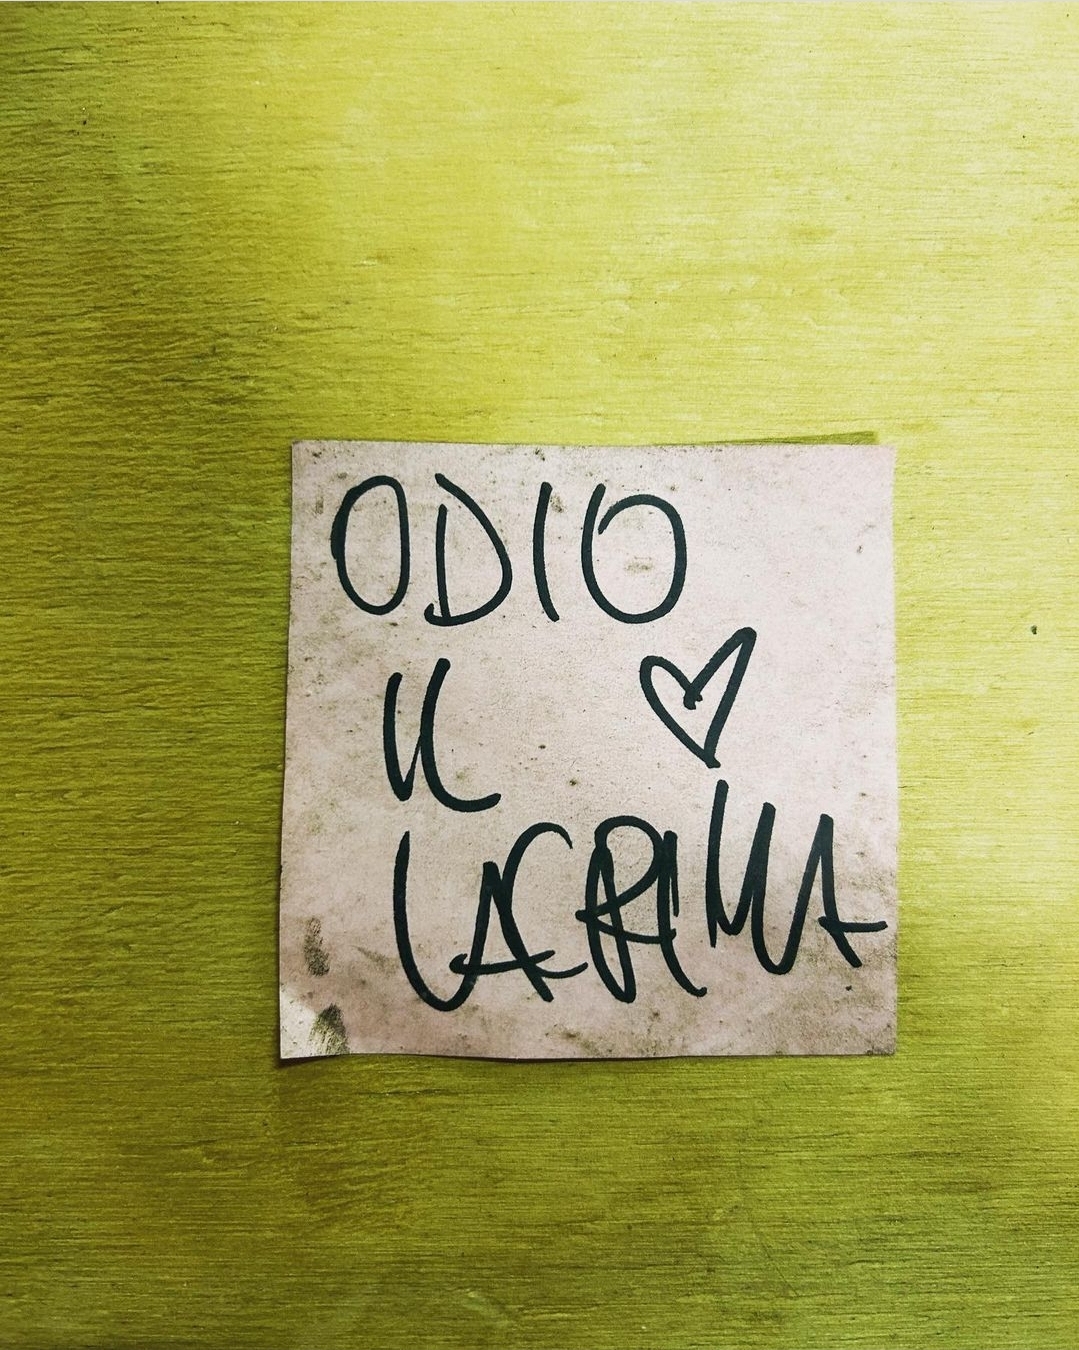 ODIO
IL ♡
LACRIMA